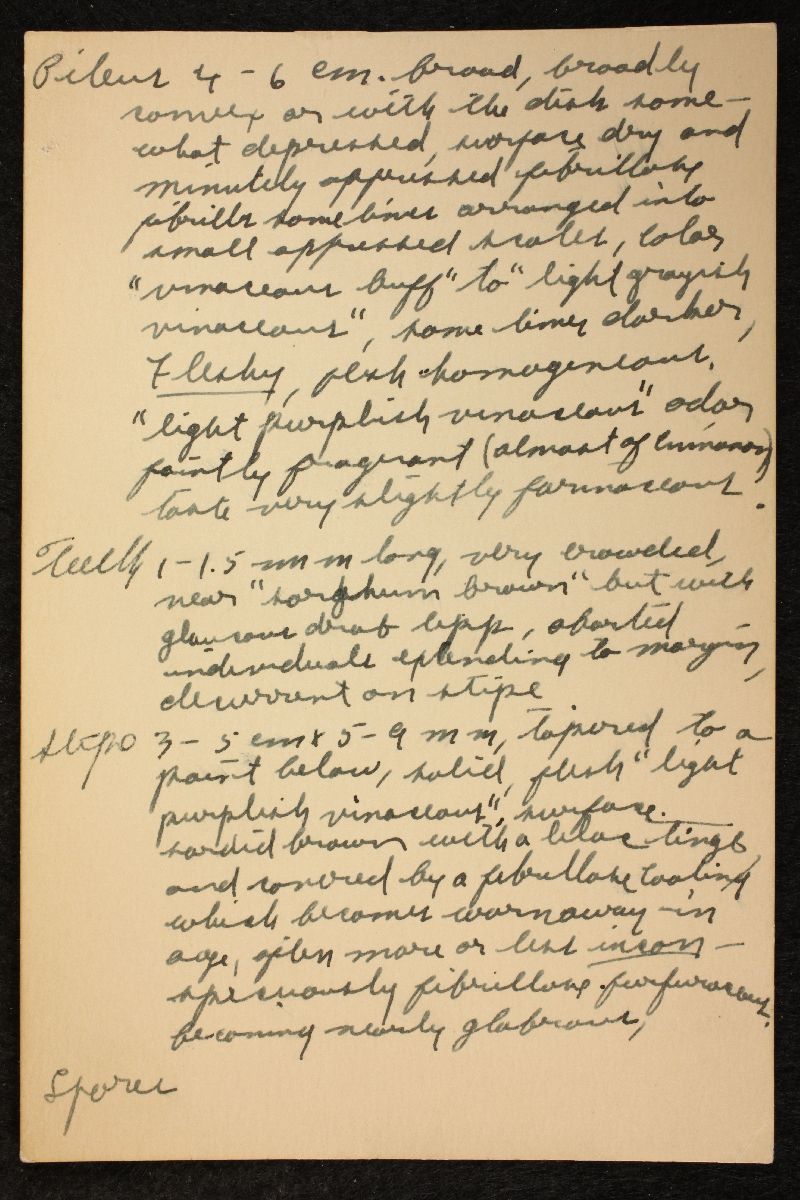 Pileus 4 - 6 cm. broad, broadly
convex or with the disk some-
what depressed, surface dry and
minutely appressed fibrillose
fibrills sometimes arranged into
small appressed scales, color
"vinaceous buff" to "light grayish
vinaceous", some times darker,
Fleshy, flesh homogeneous,
"light purplish vinaceous" odor
faintly fragrant (almost of cinnamon)
taste very slightly farinaceous.
Teeth 1-1.5 mm long, very crowded,
near "sorghum brown" but with
glaucous drab tips, aborted
individuals extending to margin,
decurrent on stipe
Stipe 3 - 5 cm x 5 - 9 mm, tapered to a
point below, solid, flesh "light
purplish vinaceous", surface
sordid brown with a lilac tinge,
and covered by a fibrillose coating
which becomes worn away in
age, often more or less incon-
spicuously fibrillose furfuraceous,
becoming nearly glabrous,
Spores